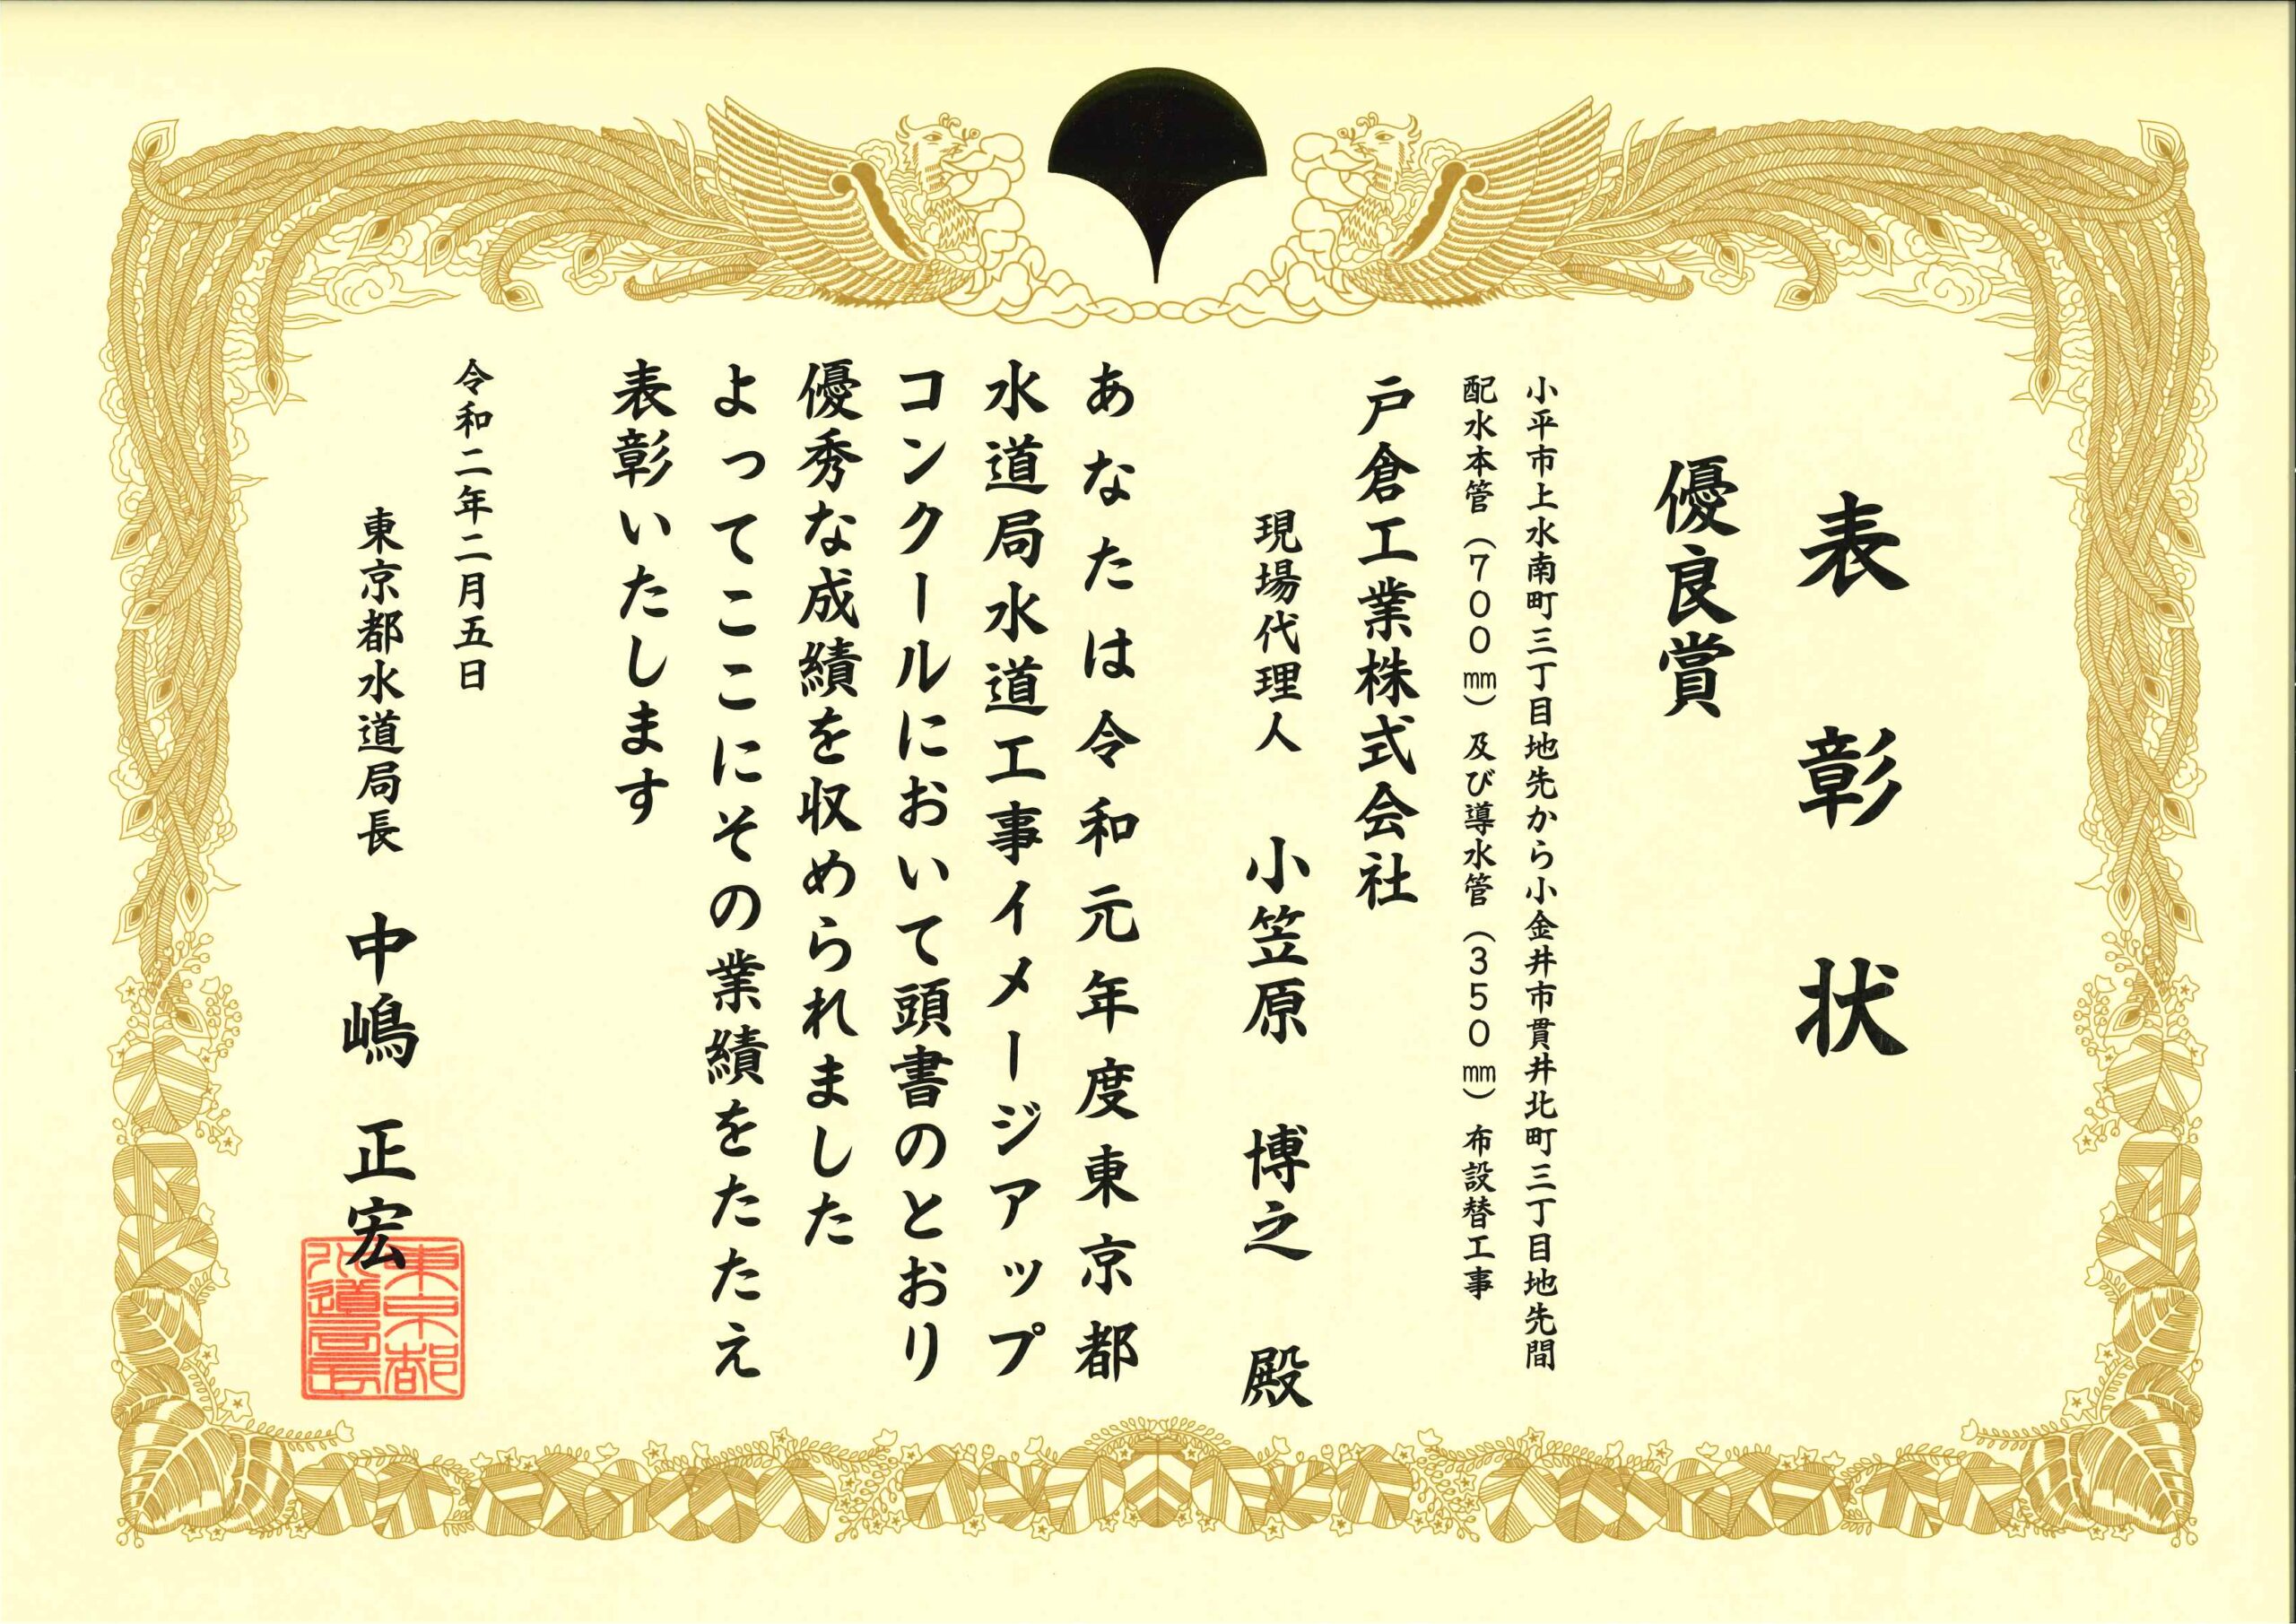 表彰状
優良賞
小平市上水南町三丁目地先から小金井市貫井北町三丁目地先間
配水本管(700㎜)及び導水管(350㎜)布設替工事
戸倉工業株式会社
現場代理人 小笠原 博之 殿
あなたは令和元年度東京都
水道局水道工事イメージアップ
コンクールにおいて頭書のとおり
優秀な成績を収められました
よってここにその業績をたたえ
表彰いたします
令和二年二月五日
東京都水道局長 中嶋 正宏
東京都
水道局長